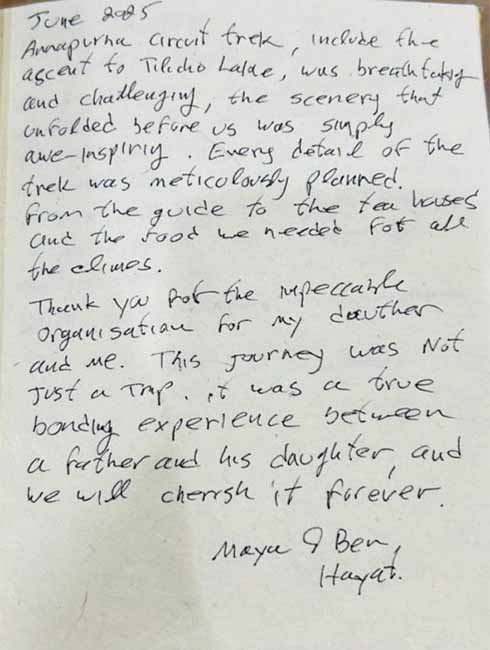 June 2025
Annapurna circuit trek, include the
ascent to Tilicho Lake, was breathtaking
and challenging, the scenery that
unfolded before us was simply
awe-inspiriy. Every detail of the
trek was meticolously planned.
From the guide to the tea houses
and the food we needed For all
the climes.
Thank you for the impeccable
organisation for my douther
and me. This journey was Not
Just a Trip. it was a true
bonding experience between
a father and his daughter, and
we will cherish it forever.
Maya & Ben,
Hayat.